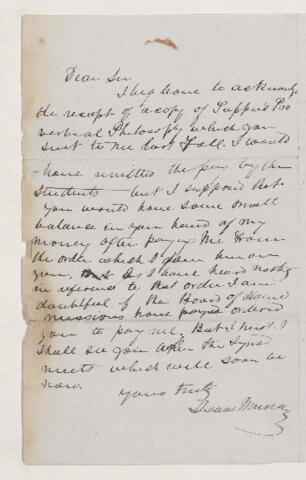 Dear Sir
I beg leave to acknowledge
the receipt of a copy of Tupper's Pro
verbial Philosophy which you
sent to me last Fall. I would
have remitted the pay by the
students — but I supposed that
you would have some small
balance in your hand of my
money after paying Mr
the order which I gave him on
you, I have heard nothing
in reference to that order I am
doubtful if the Board of
missions have payed ordered
you to pay me. But I trust I
shall see you when the Synod
meets which will soon be
now.
Yours truly